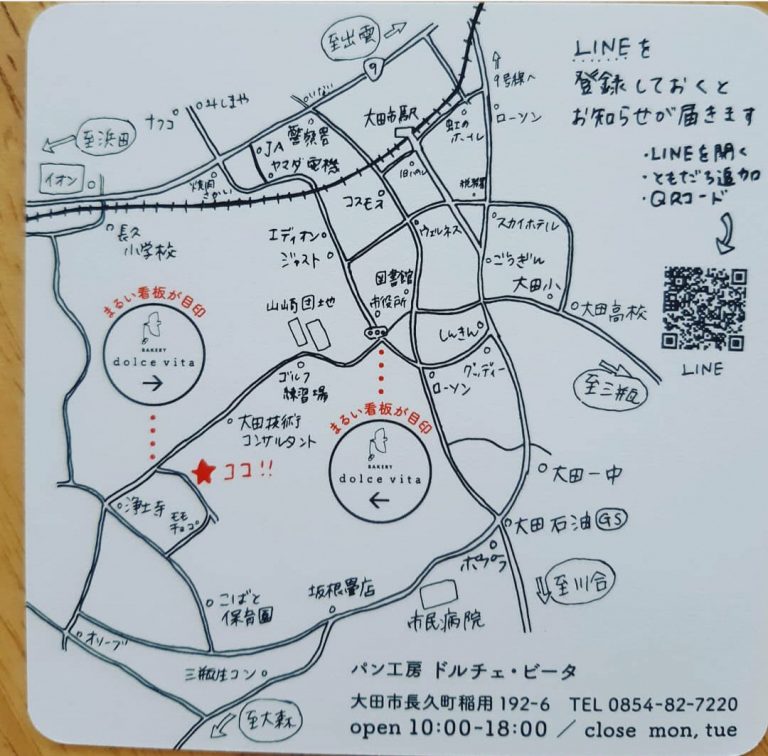 至出雲
9
いない
みしまや
ナフコ
至浜田
イオン
焼肉
さかい
JA
警察署
ヤマダ電機
大田市駅
虹の
ホール
ローソン
9号線へ
LINEを
登録しておくと
お知らせが届きます
・LINEを開く
・ともだち追加
・QRコード
LINE
コスモス
税務署
長久
小学校
エディオン
ジャスト
ウェルネス
スカイホテル
ごうぎん
大田小
大田高校
図書館
市役所
山崎団地
しんきん
グッディー
ローソン
至三瓶
ゴルフ
練習場
まるい看板が目印
BAKERY
dolce vita
→
大田技術
コンサルタント
まるい看板が目印
BAKERY
dolce vita
←
★ココ!!
浄土寺
モモ
チョコ
大田一中
大田石油GS
ポプラ
至川合
市民病院
坂根畳店
こばと
保育園
オリーブ
三瓶生コン
至大森
パン工房 ドルチェ・ビータ
大田市長久町稲用 192-6 TEL 0854-82-7220
open 10:00-18:00 / close mon, tue